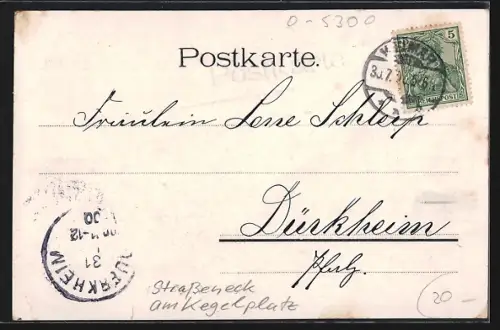 0-5300
Postkarte.
5
30.7.
Fräulein Lene Schleip
Dürkheim
Pfalz.
DUERKHEIM
31
11-12
00
Straßeneck
am Kegelplatz
20-